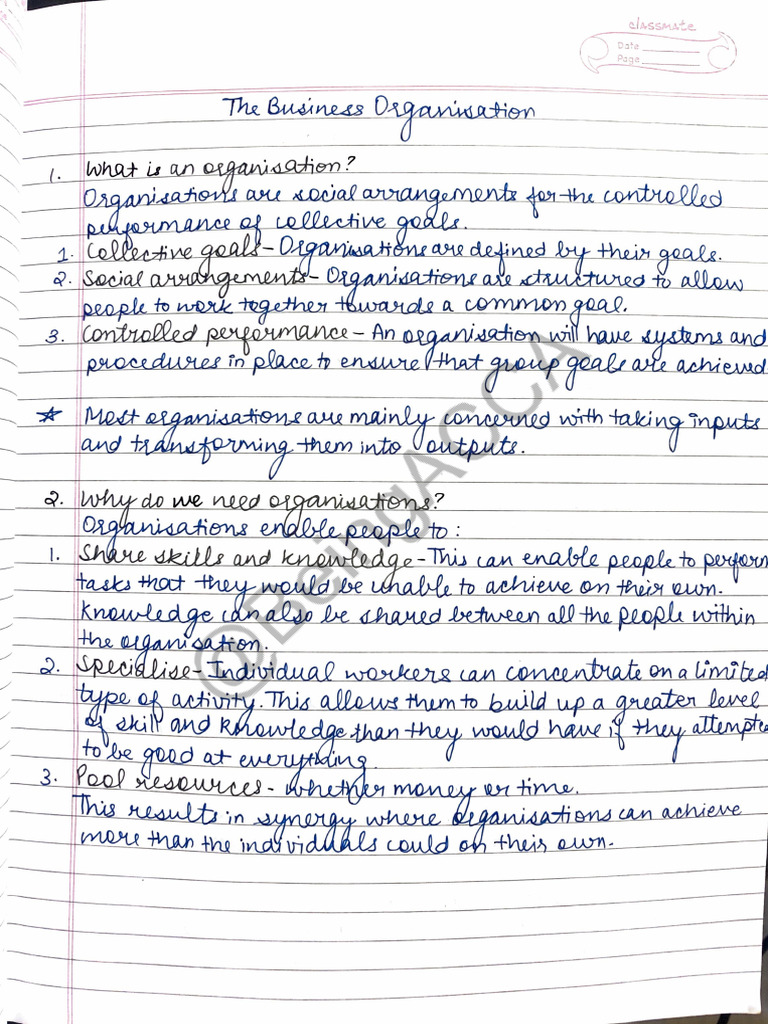 classmate
Date
Page
The Business Organisation
1. What is an organisation?
Organisations are social arrangements for the controlled
performance of collective goals.
1. Collective goals - Organisations are defined by their goals.
2. Social arrangements - Organisations are structured to allow
people to work together towards a common goal.
3. Controlled performance - An organisation will have systems and
procedures in place to ensure that group goals are achieved
* Most organisations are mainly concerned with taking inputs
and transforming them into outputs.
2. Why do we need organisations?
Organisations enable people to :
1. Share skills and knowledge - This can enable people to perform
tasks that they would be unable to achieve on their own.
Knowledge can also be shared between all the people within
the organisation.
2. Specialise - Individual workers can concentrate on a limited
type of activity. This allows them to build up a greater level
of skill and knowledge than they would have if they attempte
to be good at everything.
3. Pool resources - whether money or time.
This results in synergy where organisations can achieve
more than the individuals could on their own.
@BeingACCA